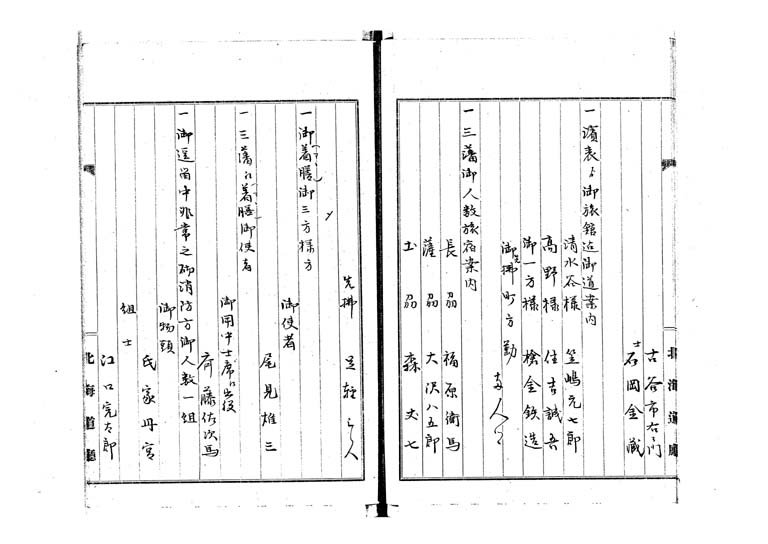 古谷市右衛門
士
石岡金蔵
一濱表ゟ御旅館迄御道案内
清水谷様 笠嶋元七郎
高野様 住吉誠吾
御一方様 榛金鉄造
御先拂町方勤 両人
一三藩御人数旅宿案内
長州 福原衛馬
薩州 大沢八五郎
土州 森丈七
北海道廳
先拂 足軽
一御着謄御三方様方
御使者
尾見雄三
一三藩江着謄御使者
御用中士席江出役
斉藤佐次馬
一御逗留中非常之節消防方御人数一組
御物頭
氏家丹宮
組士
江口完太郎
北海道廳